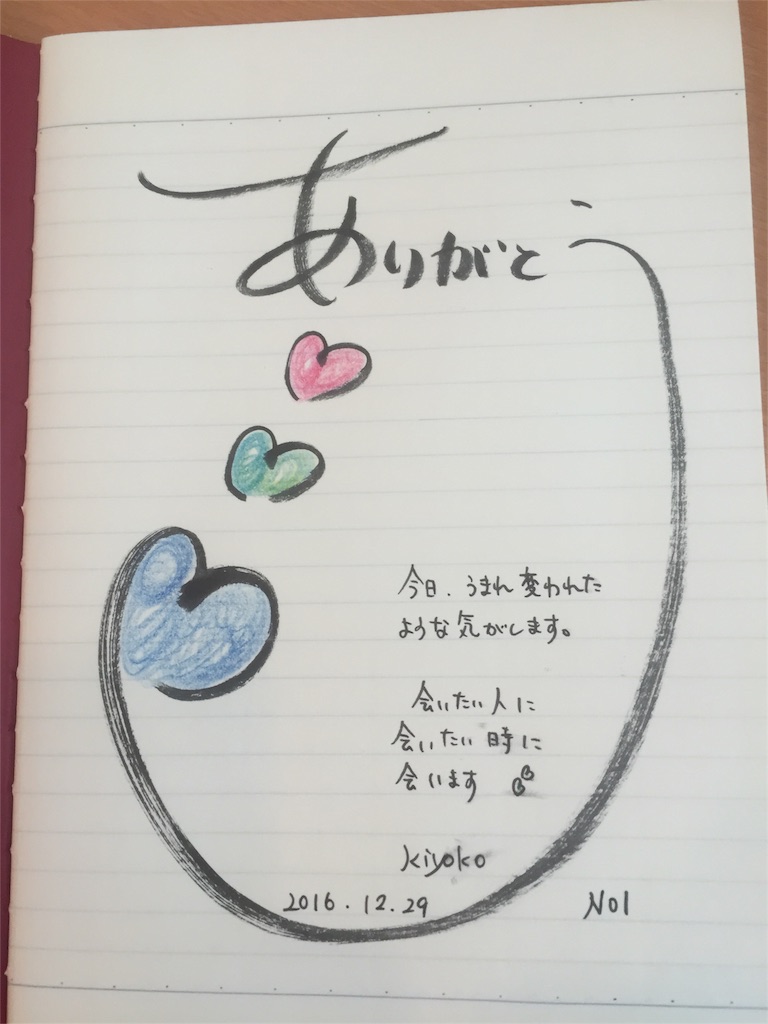 ありがとう
今日、うまれ変われた
ような気がします。
会いたい人に
会いたい時に
会います
kiyoko
2016.12.29
NO1